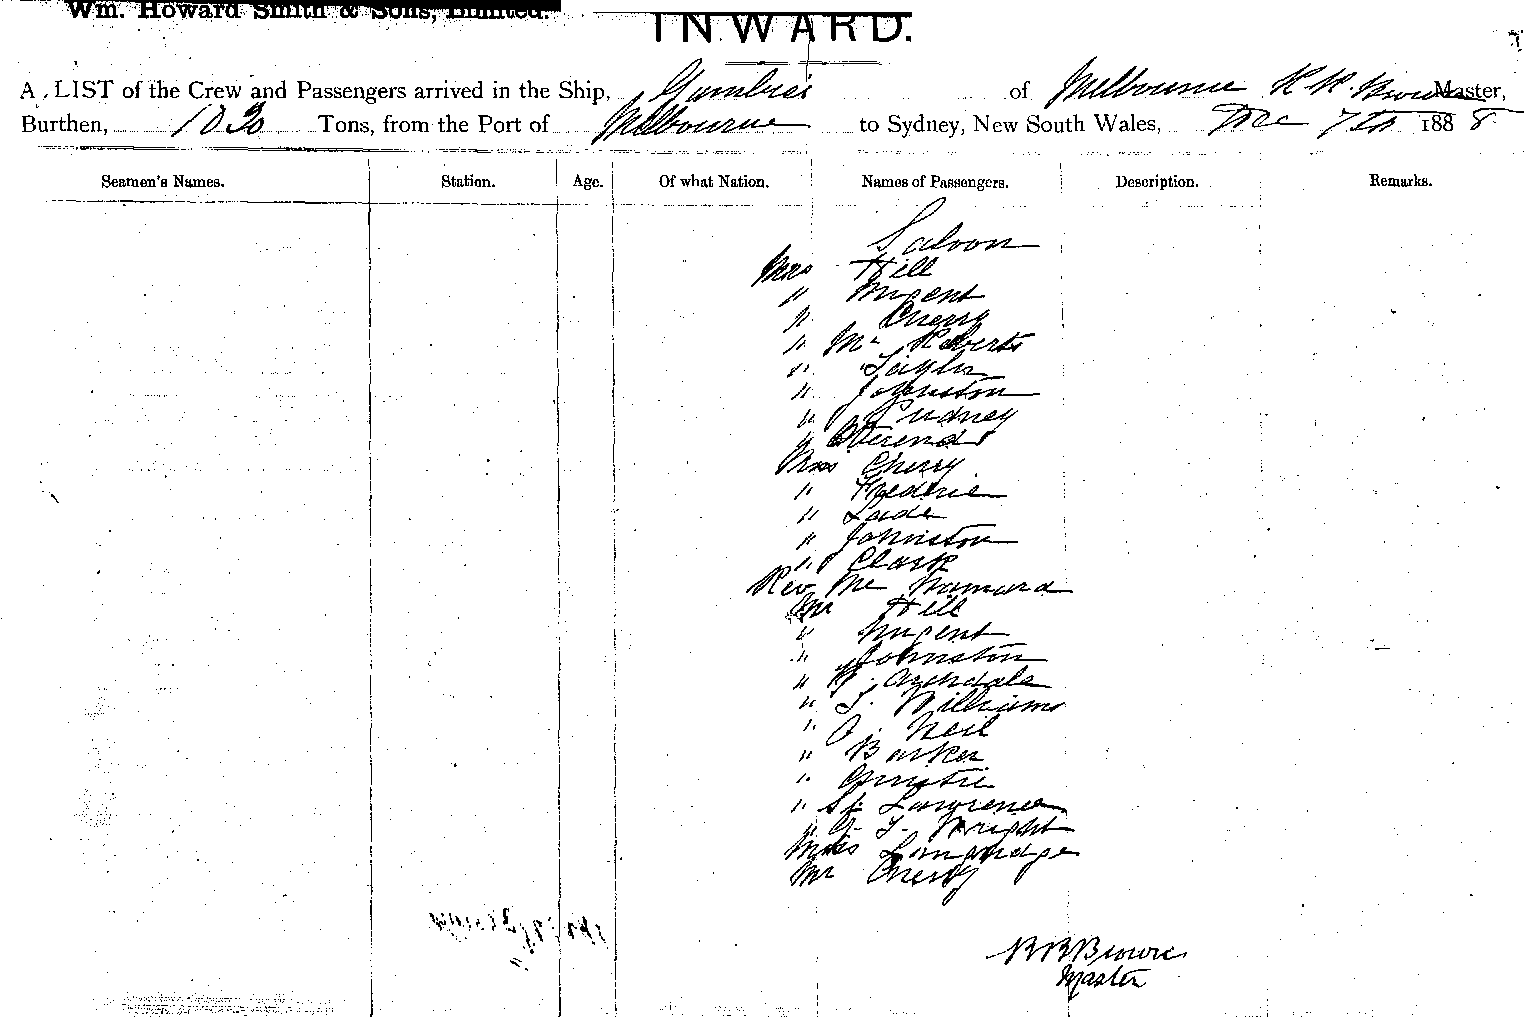 Wm. Howard Smith & Sons, Limited.
INWARD.
A LIST of the Crew and Passengers arrived in the Ship, Gambier of Melbourne R. R. Brown Master,
Burthen, 1030 Tons, from the Port of Melbourne to Sydney, New South Wales, Dec 7th 1888
Seamen's Names. Station. Age. Of what Nation. Names of Passengers. Description. Remarks.
Saloon
Mrs Hill
" Nugent
" Cherry
" Mc Roberts
" Taylor
" Johnston
" Pudney
"
Miss Cherry
" Frederic
" Lade
" Johnston
" Clark
Rev Mc Namara
Mr Hill
" Nugent
" Johnston
" Archdale
" T. Williams
" O. Neil
" Barker
" Christie
" Lawrence
" T. Wright
Miss Langridge
Mr Cherry
Brown
Master